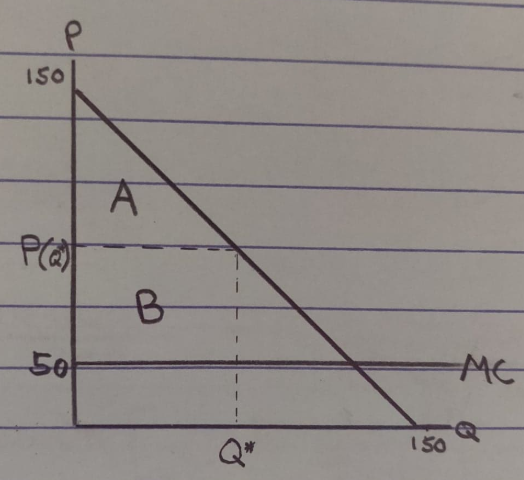 P
150
A
P(Q)
B
50
MC
150
Q
Q*